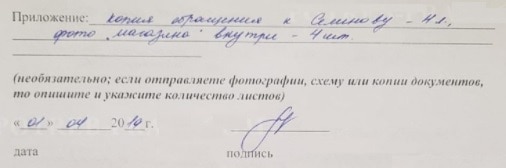 Приложение: копия обращения к Семинову - 4 л,
фото "магазина" внутри - 4 шт.
(необязательно; если отправляете фотографии, схему или копии документов,
то опишите и укажите количество листов)
«01» 04 2014 г.
дата подпись